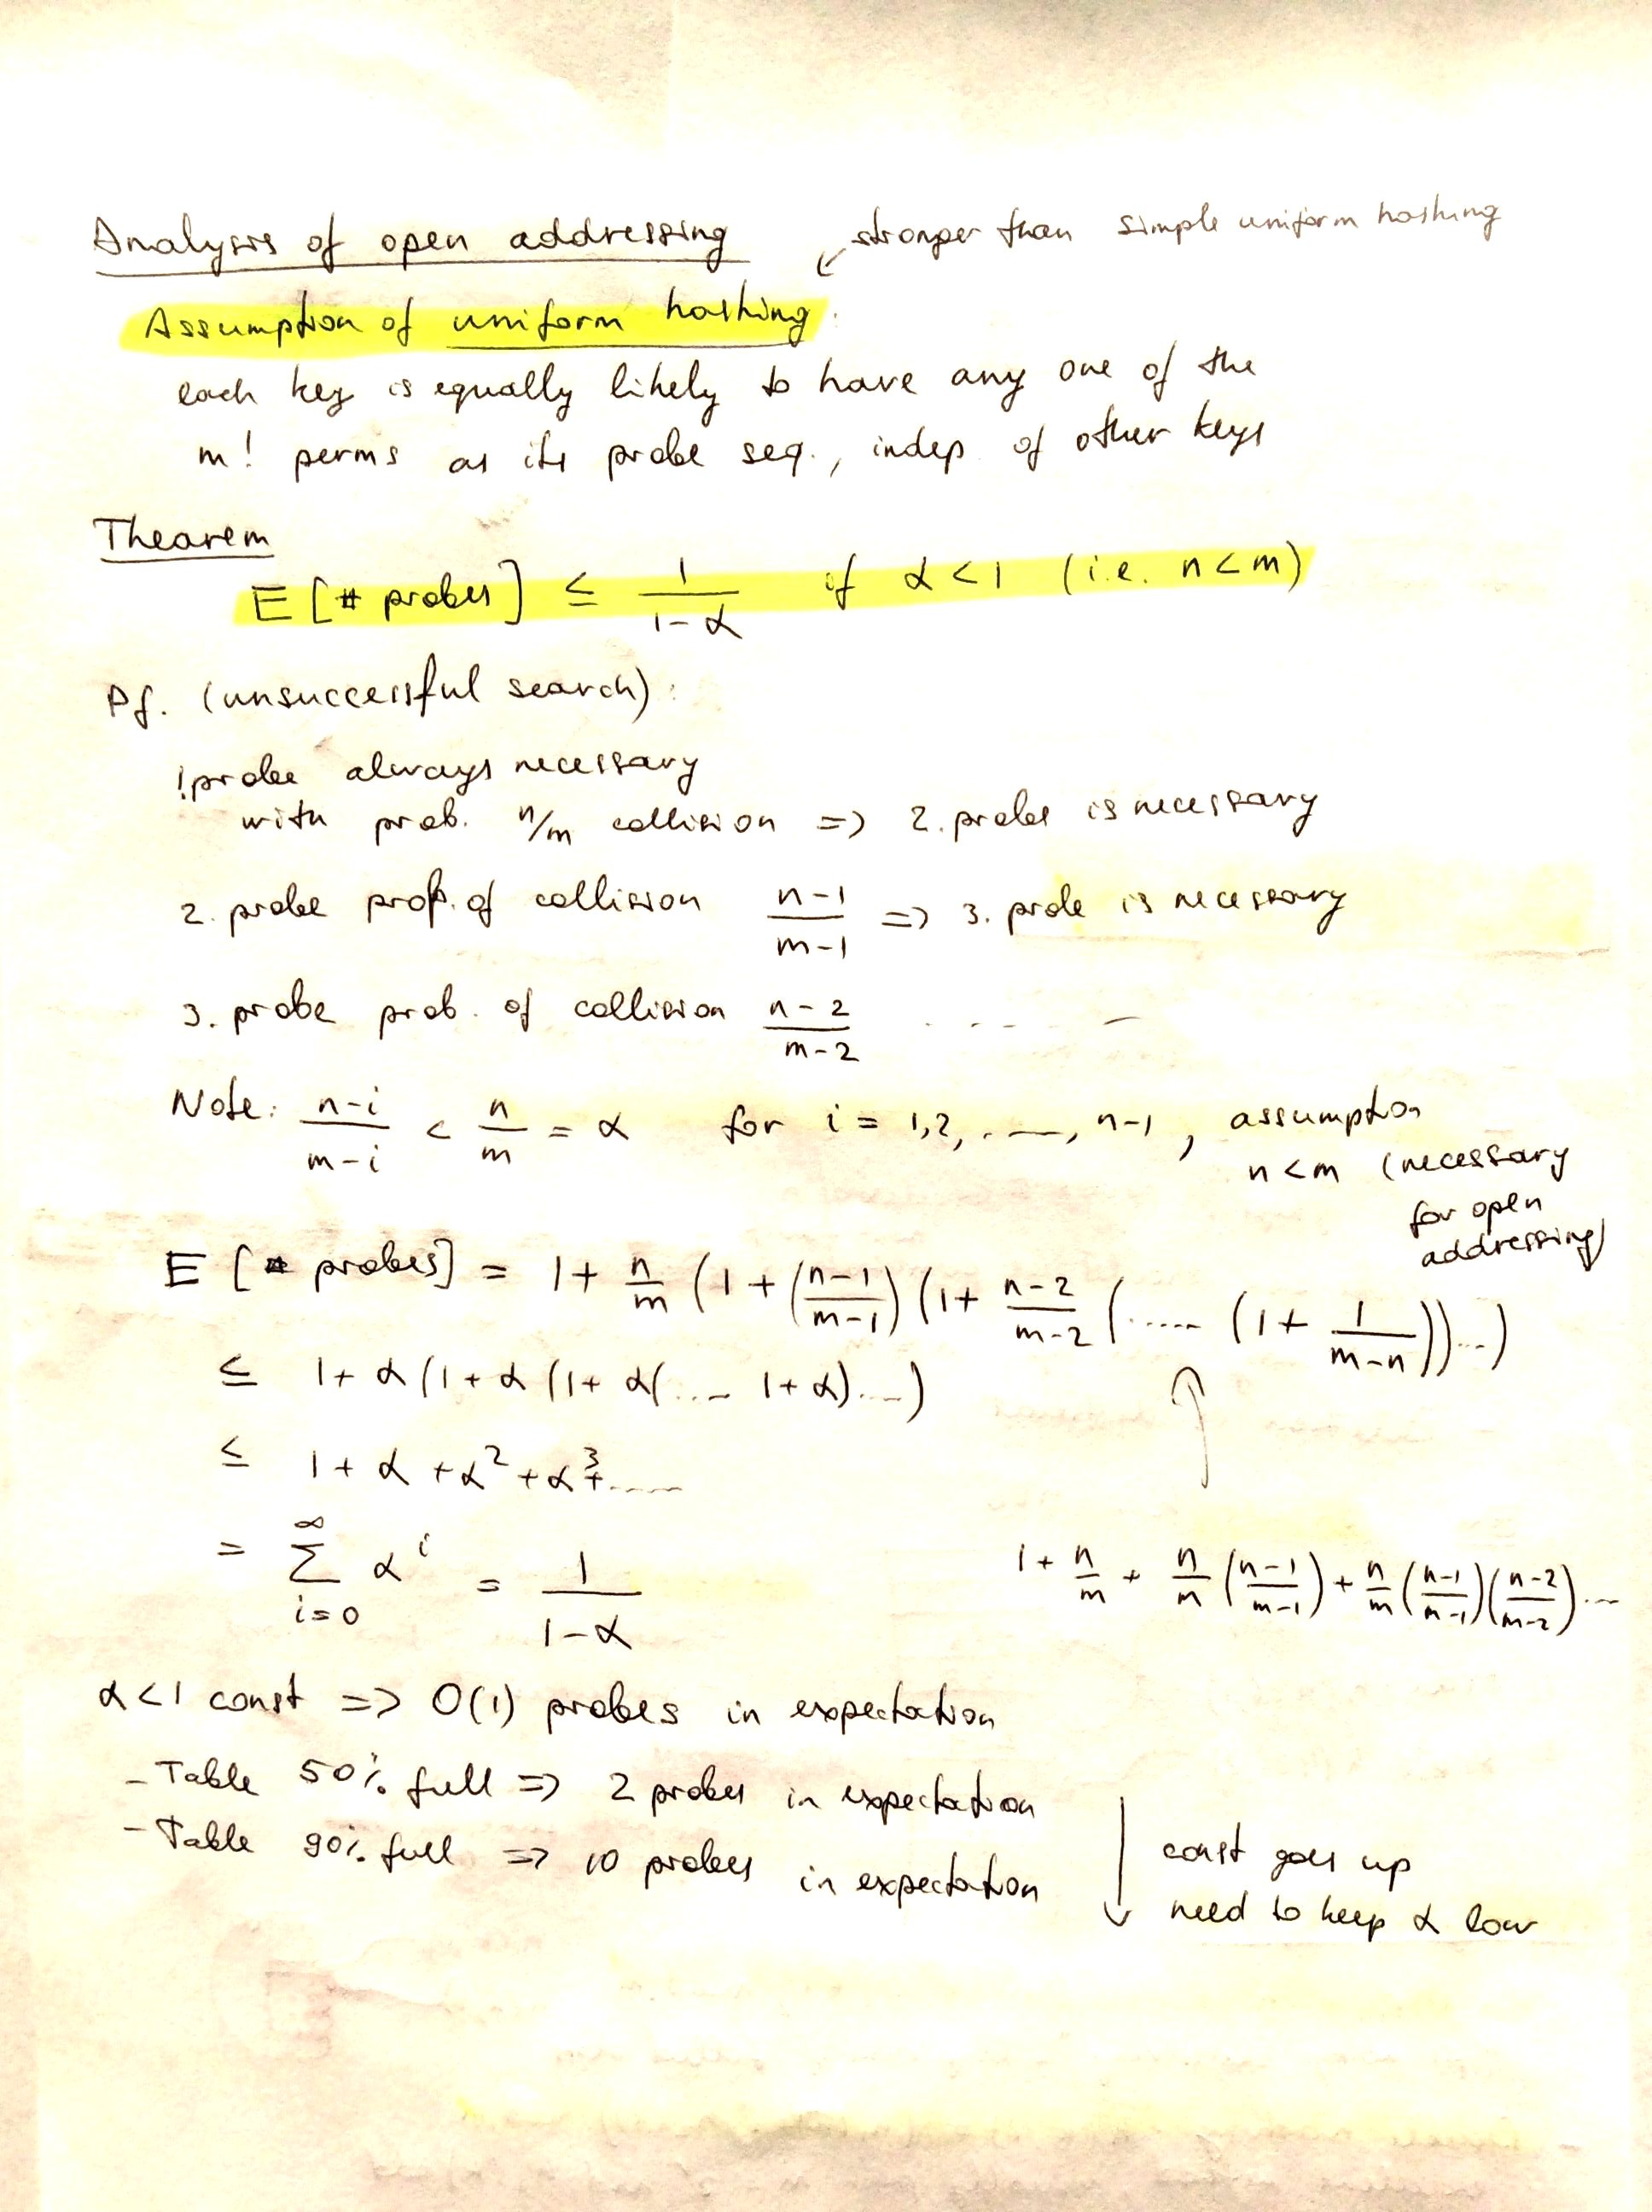 Analysis of open addressing
stronger than simple uniform hashing
Assumption of uniform hashing:
each key is equally likely to have any one of the
m! perms as its probe seq., indep. of other keys
Theorem
E [# probes] ≤ 1/(1-α) if α<1 (i.e. n<m)
Pf. (unsuccessful search):
1 probe always necessary
with prob. n/m collision => 2. probe is necessary
2. probe prob. of collision (n-1)/(m-1) => 3. probe is necessary
3. probe prob. of collision (n-2)/(m-2) .....
Note: (n-i)/(m-i) < n/m = α for i = 1,2, ..., n-1, assumption
n<m (necessary
for open
addressing)
E [# probes] = 1 + n/m (1 + ((n-1)/(m-1)) (1 + (n-2)/(m-2) (..... (1 + 1/(m-n)))...)
≤ 1+ α(1+α(1+ α(.... 1+α)....)
≤ 1+ α +α² +α³+.....
= ∑_{i=0}^{∞} α^i = 1/(1-α)
1 + n/m + n/m ((n-1)/(m-1)) + n/m ((n-1)/(m-1))((n-2)/(m-2)) ...
α<1 const => O(1) probes in expectation
- Table 50% full => 2 probes in expectation
- Table 90% full => 10 probes in expectation
const goes up
need to keep α low